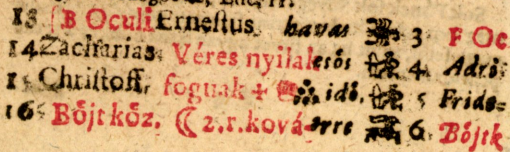 13 B Oculi Erneſtus. havas 3 F Oc
14 Zacharias. Véres nyilak esös 4 Adri
15 Chriſtoff. foguak + idö. 5 Fride=
16 Böjt köz. ☾ 2.r.ková= 6 Böjtk